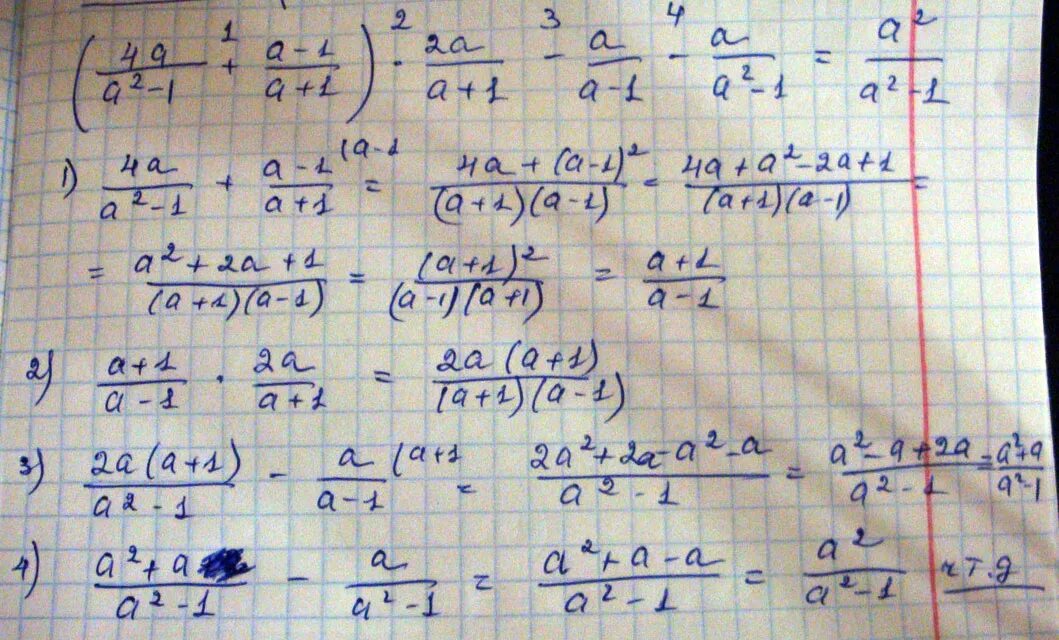 (4a/(a²-1) + (a-1)/(a+1)) · 2a/(a+1) - a/(a-1) - a/(a²-1) = a²/(a²-1)
1 2 3 4
1) 4a/(a²-1) + (a-1)/(a+1) (a-1 = (4a+(a-1)²)/((a+1)(a-1)) = (4a+a²-2a+1)/((a+1)(a-1)) =
= (a²+2a+1)/((a+1)(a-1)) = (a+1)²/((a-1)(a+1)) = (a+1)/(a-1)
2) (a+1)/(a-1) · 2a/(a+1) = 2a(a+1)/((a+1)(a-1))
3) 2a(a+1)/(a²-1) - a/(a-1) (a+1 = (2a²+2a-a²-a)/(a²-1) = (a²-a+2a)/(a²-1) = (a²+a)/(a²-1)
4) (a²+a)/(a²-1) - a/(a²-1) = (a²+a-a)/(a²-1) = a²/(a²-1) ч.т.д